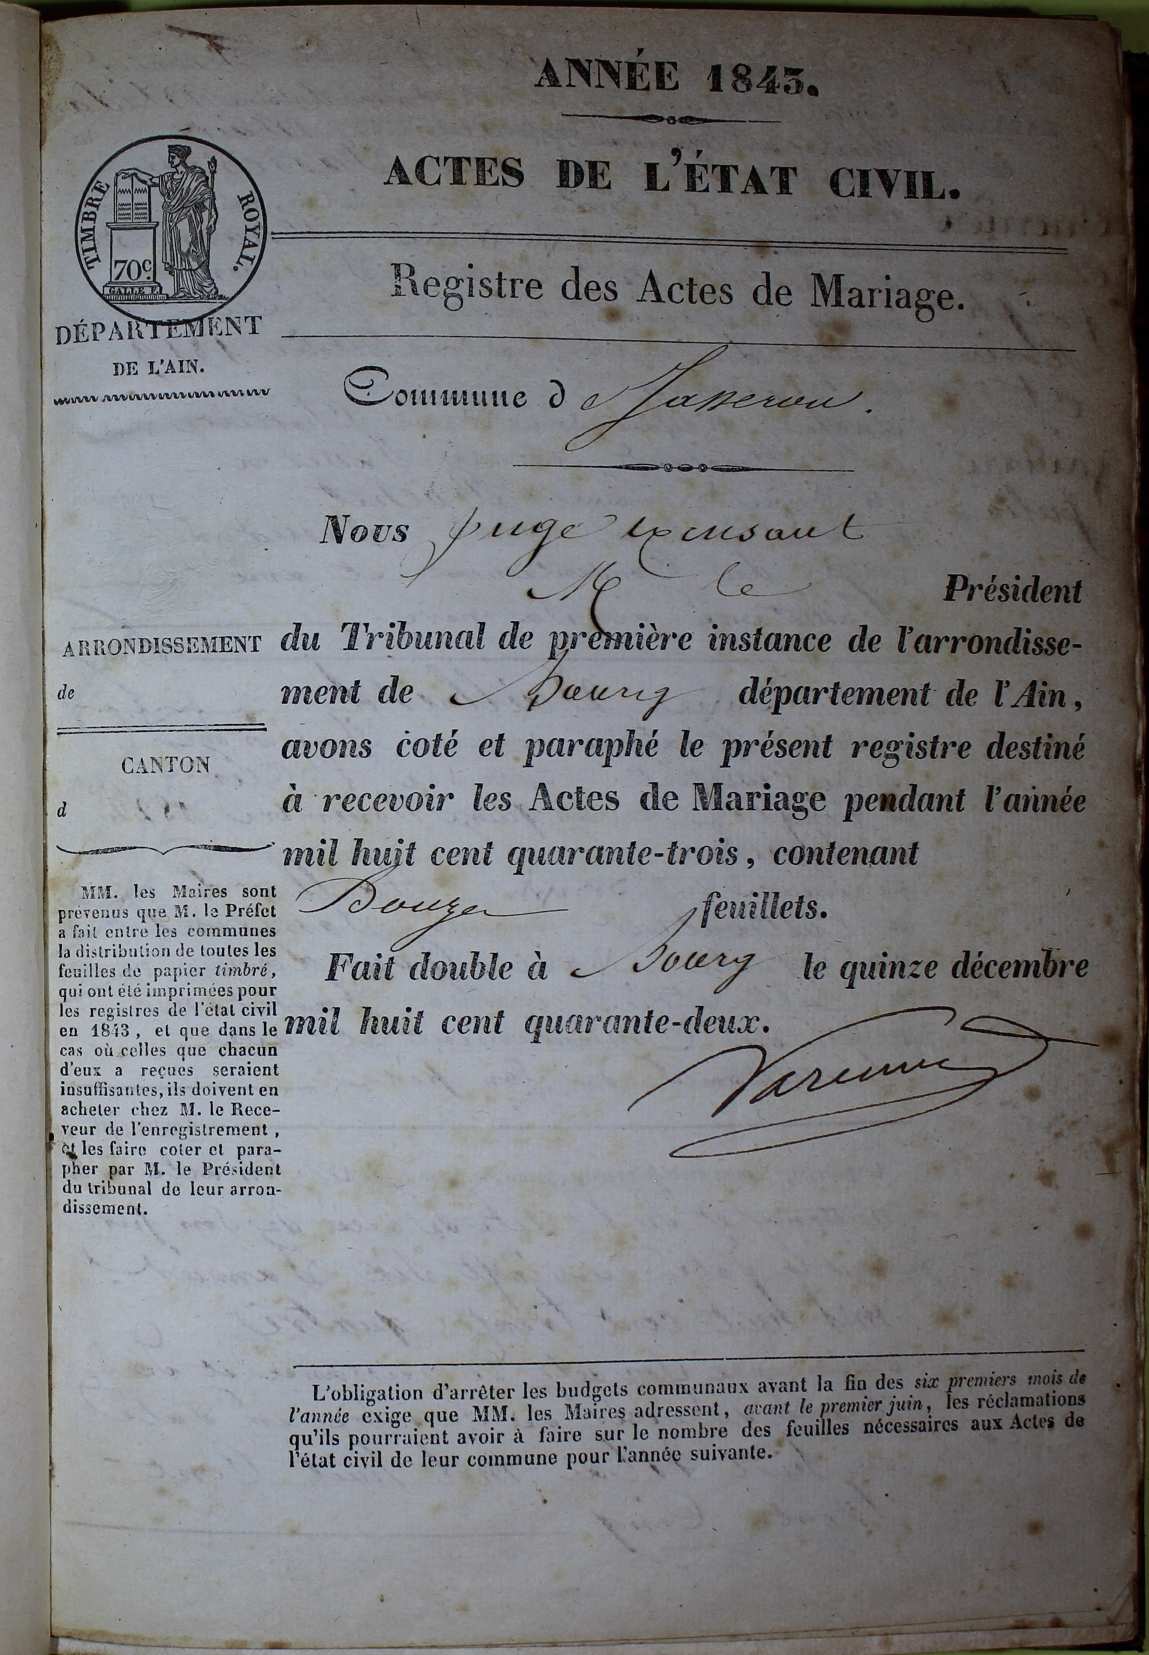 ANNÉE 1843.
ACTES DE L'ÉTAT CIVIL.
TIMBRE ROYAL.
70c.
GALLE F.
DÉPARTEMENT
DE L'AIN.
Registre des Actes de Mariage.
Commune d Jasseron.
Nous Juge
M le Président
du Tribunal de première instance de l'arrondisse-
ment de Bourg département de l'Ain,
avons coté et paraphé le présent registre destiné
à recevoir les Actes de Mariage pendant l'année
mil huit cent quarante-trois, contenant
Douze feuillets.
Fait double à Bourg le quinze décembre
mil huit cent quarante-deux.
ARRONDISSEMENT
de
CANTON
d
MM. les Maires sont
prévenus que M. le Préfet
a fait entre les communes
la distribution de toutes les
feuilles de papier timbré,
qui ont été imprimées pour
les registres de l'état civil
en 1843, et que dans le
cas où celles que chacun
d'eux a reçues seraient
insuffisantes, ils doivent en
acheter chez M. le Rece-
veur de l'enregistrement,
et les faire coter et para-
pher par M. le Président
du tribunal de leur arron-
dissement.
L'obligation d'arrêter les budgets communaux avant la fin des six premiers mois de
l'année exige que MM. les Maires adressent, avant le premier juin, les réclamations
qu'ils pourraient avoir à faire sur le nombre des feuilles nécessaires aux Actes de
l'état civil de leur commune pour l'année suivante.